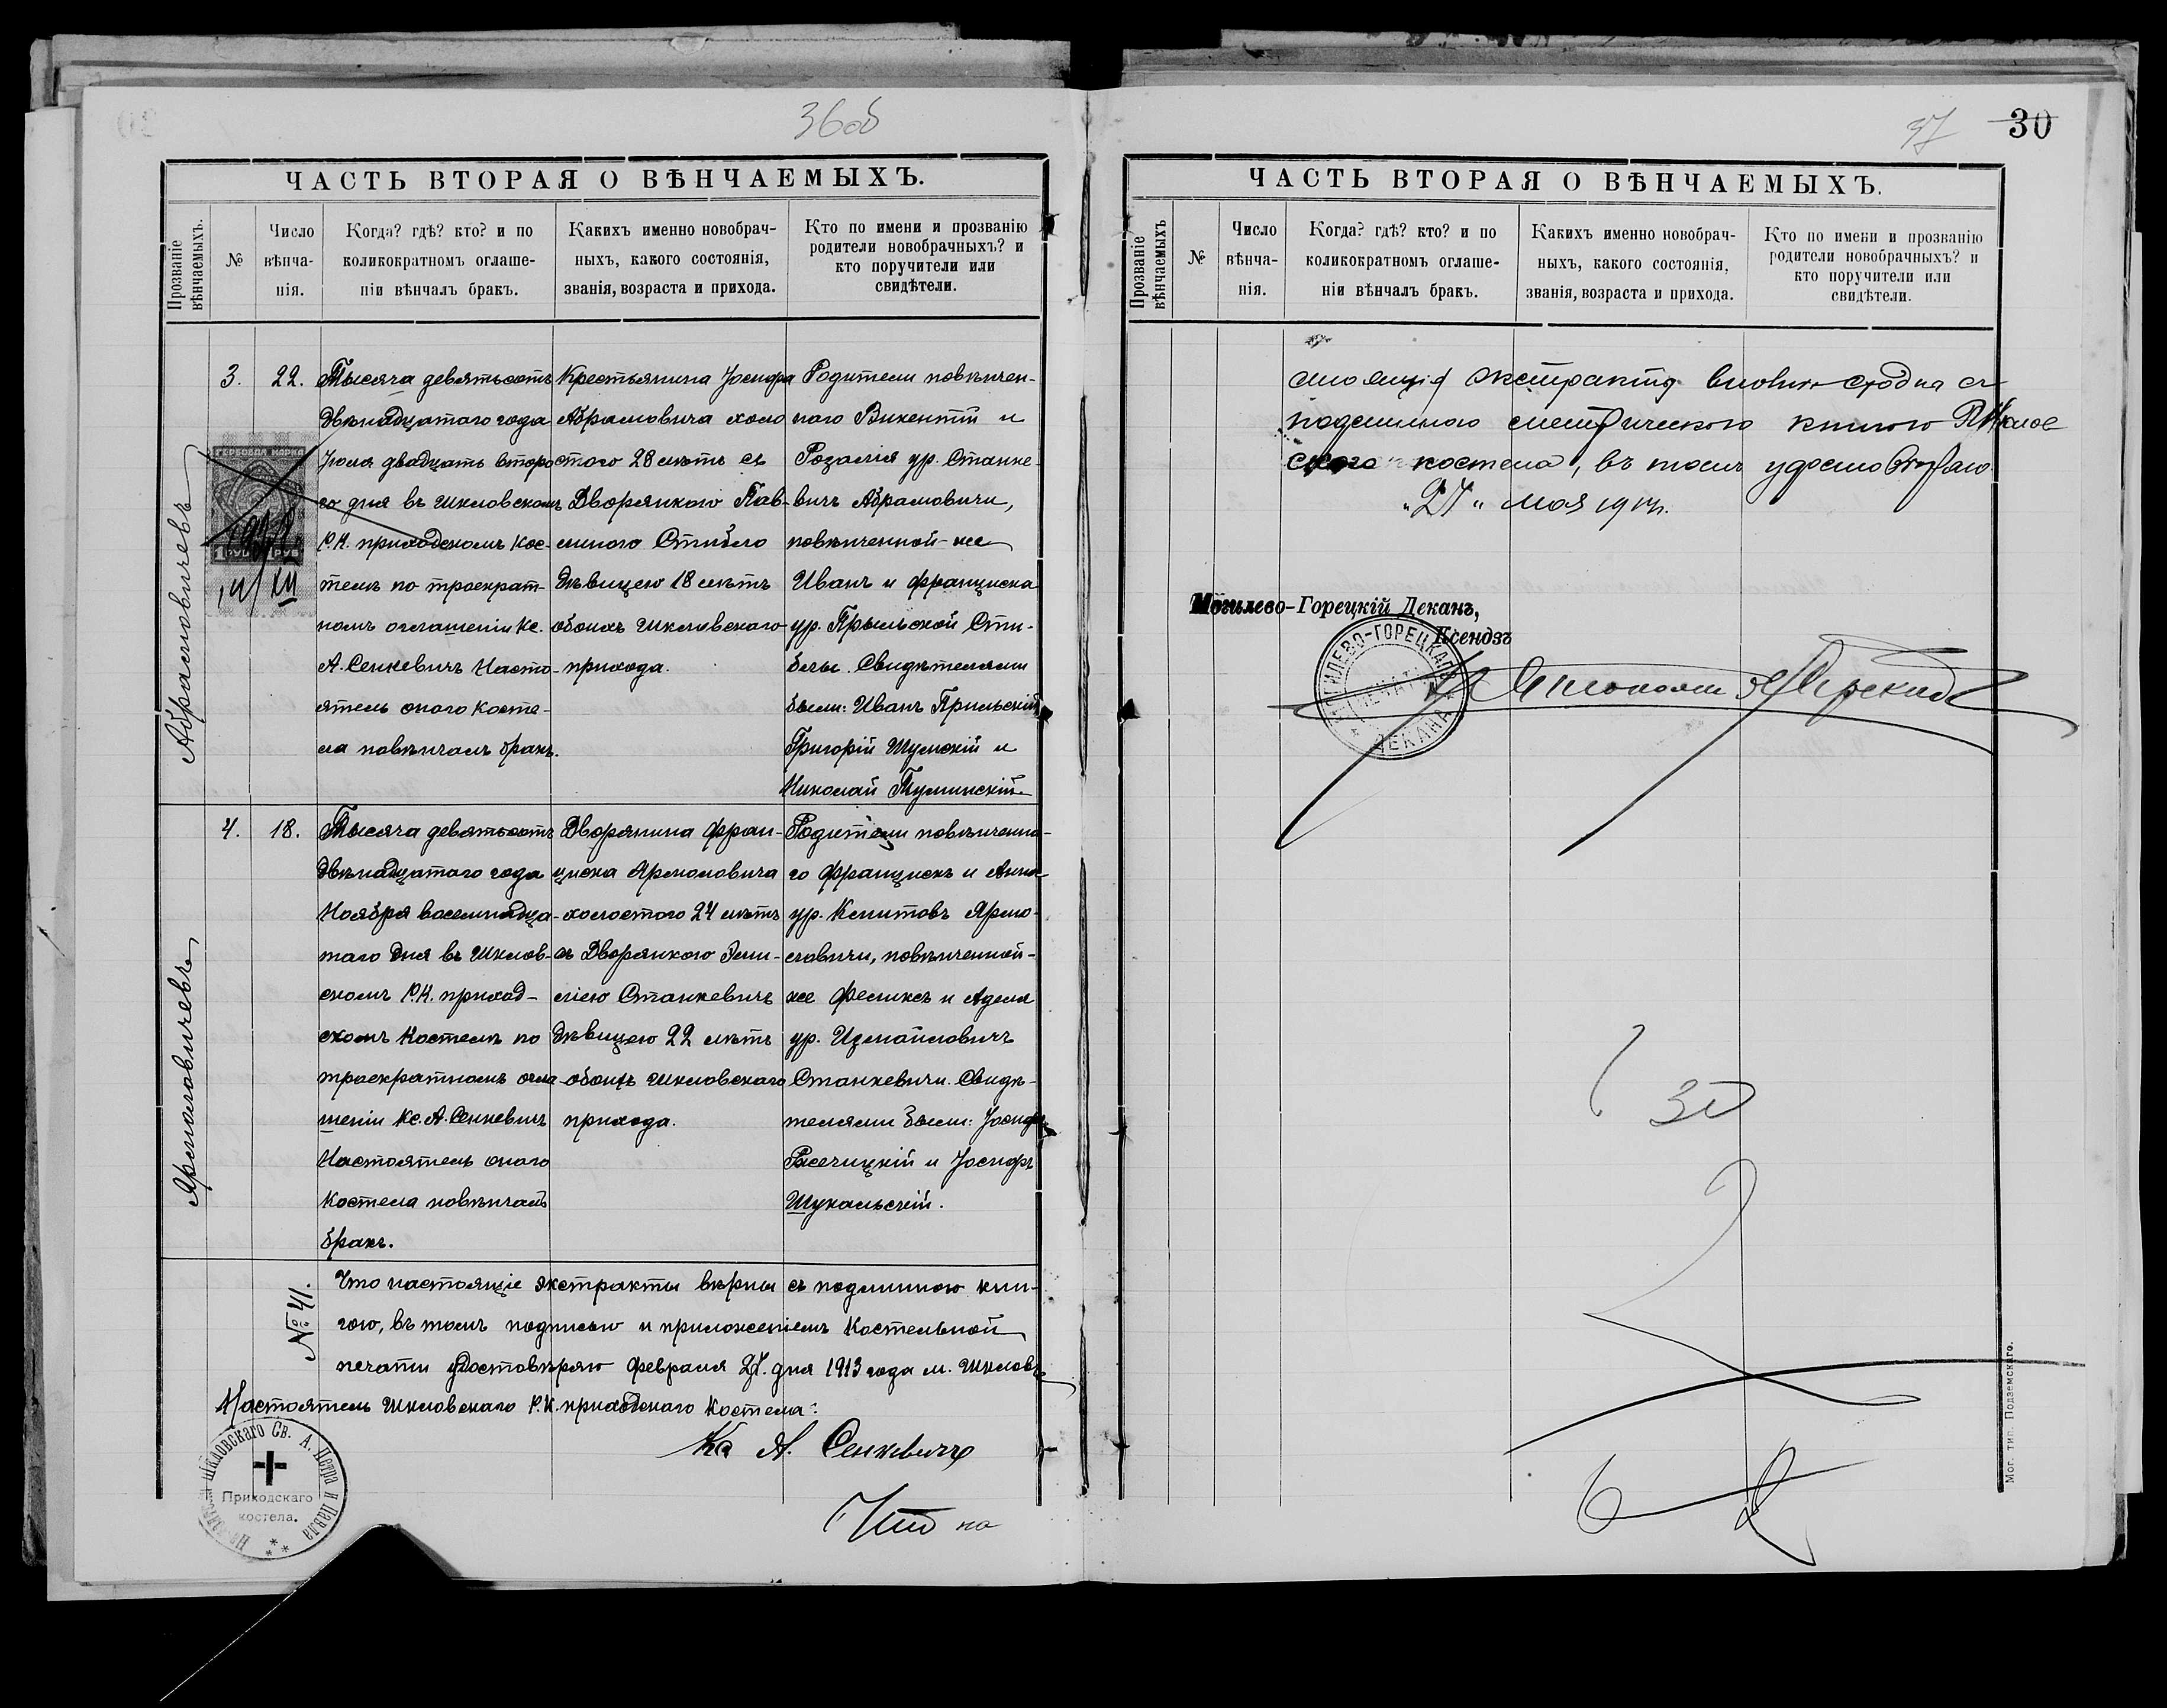 36об
ЧАСТЬ ВТОРАЯ О ВѢНЧАЕМЫХЪ.
Прозваніе вѣнчаемыхъ.
№
Число вѣнча-нія.
Когда? гдѣ? кто? и по
коликократномъ оглаше-
ніи вѣнчалъ бракъ.
Какихъ именно новобрач-
ныхъ, какого состоянія,
званія, возраста и прихода.
Кто по имени и прозванію
родители новобрачныхъ? и
кто поручители или
свидѣтели.
Абрамовичевъ
3.
22.
Тысяча девятьсотъ
двѣнадцатаго года
Іюля двадцать второ
го дня въ Шкловскомъ
Р.К. приходскомъ кос-
телѣ по троекрат-
номъ оглашеніи Кс.
А. Сенкевичъ Насто-
ятель онаго косте-
ла повѣнчалъ бракъ.
Крестьянина Іосифа
Абрамовича холо
стого 28 лѣтъ съ
Дворянкою Пав-
линою Стибло
дѣвицею 18 лѣтъ
обоихъ Шкловскаго
прихода.
Родители повѣнчен-
наго Викентій и
Розалія ур. Станке-
вичъ Абрамовичи,
повѣнченной-же
Иванъ и Франциска
ур. Прыльской Сти-
блы. Свидѣтелями
были: Иванъ Прильскій
Григорій Шумскій и
Николай Туминскій
ГЕРБОВАЯ МАРКА
1 РУБ
Ярмоловичевъ
4.
18.
Тысяча девятьсотъ
двѣнадцатаго года
Ноября восемнадца-
таго дня въ Шклов-
скомъ Р.К. приход-
скомъ Костелѣ по
троекратномъ огла-
шеніи Кс. А. Сенкевичъ
Настоятель онаго
Костела повѣнчалъ
бракъ.
Дворянина Фран-
циска Ярмоловича
холостого 24 лѣтъ
съ Дворянкою Эми-
ліею Станкевичъ
дѣвицею 22 лѣтъ
обоихъ Шкловскаго
прихода.
Родители повѣнченна-
го Францискъ и Анна
ур. Кмитовъ Ярмо-
ловичи, повѣнченной-
же Феликсъ и Адела
ур. Измайловичъ
Станкевичи. Свидѣ-
телями были: Іосифъ
Іосифъ
Шукальскій.
№ 41.
Что настоящіе экстракты вѣрны съ подлинною кни-
гою, въ томъ подписью и приложеніемъ Костельной
печати удостовѣряю Февраля дня 1913 года м. Шкловъ
Настоятель Шкловскаго Р.К. приходскаго Костела:
Кс А. Сенкевичъ
Шкловскаго Св. А. Петра и Павла
Приходскаго
костела.
Что на
37
30
ЧАСТЬ ВТОРАЯ О ВѢНЧАЕМЫХЪ.
Прозваніе вѣнчаемыхъ
№
Число вѣнча-нія.
Когда? гдѣ? кто? и по
коликократномъ оглаше-
ніи вѣнчалъ бракъ.
Какихъ именно новобрач-
ныхъ, какого состоянія,
званія, возраста и прихода.
Кто по имени и прозванію
родители новобрачныхъ? и
кто поручители или
свидѣтели.
стоящій экстрактъ сходна съ
подлинною метрическою книгою
костела, въ томъ удостовѣряю
"27" мая
Могилево-Горецкій Деканъ,
Ксендзъ
МОГИЛЕВО-ГОРЕЦКАГО ДЕКАНА
30
Мог. тип. Подземскаго.